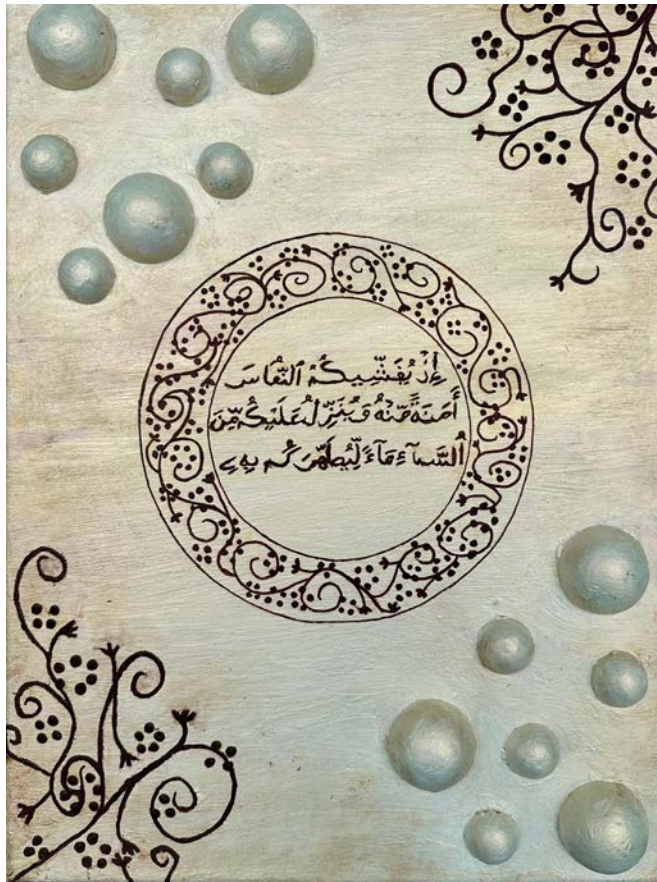 إِذْ يُغَشِّيكُمُ ٱلنُّعَاسَ
أَمَنَةً مِّنْهُ وَيُنَزِّلُ عَلَيْكُم مِّنَ
ٱلسَّمَآءِ مَآءً لِّيُطَهِّرَكُم بِهِۦ